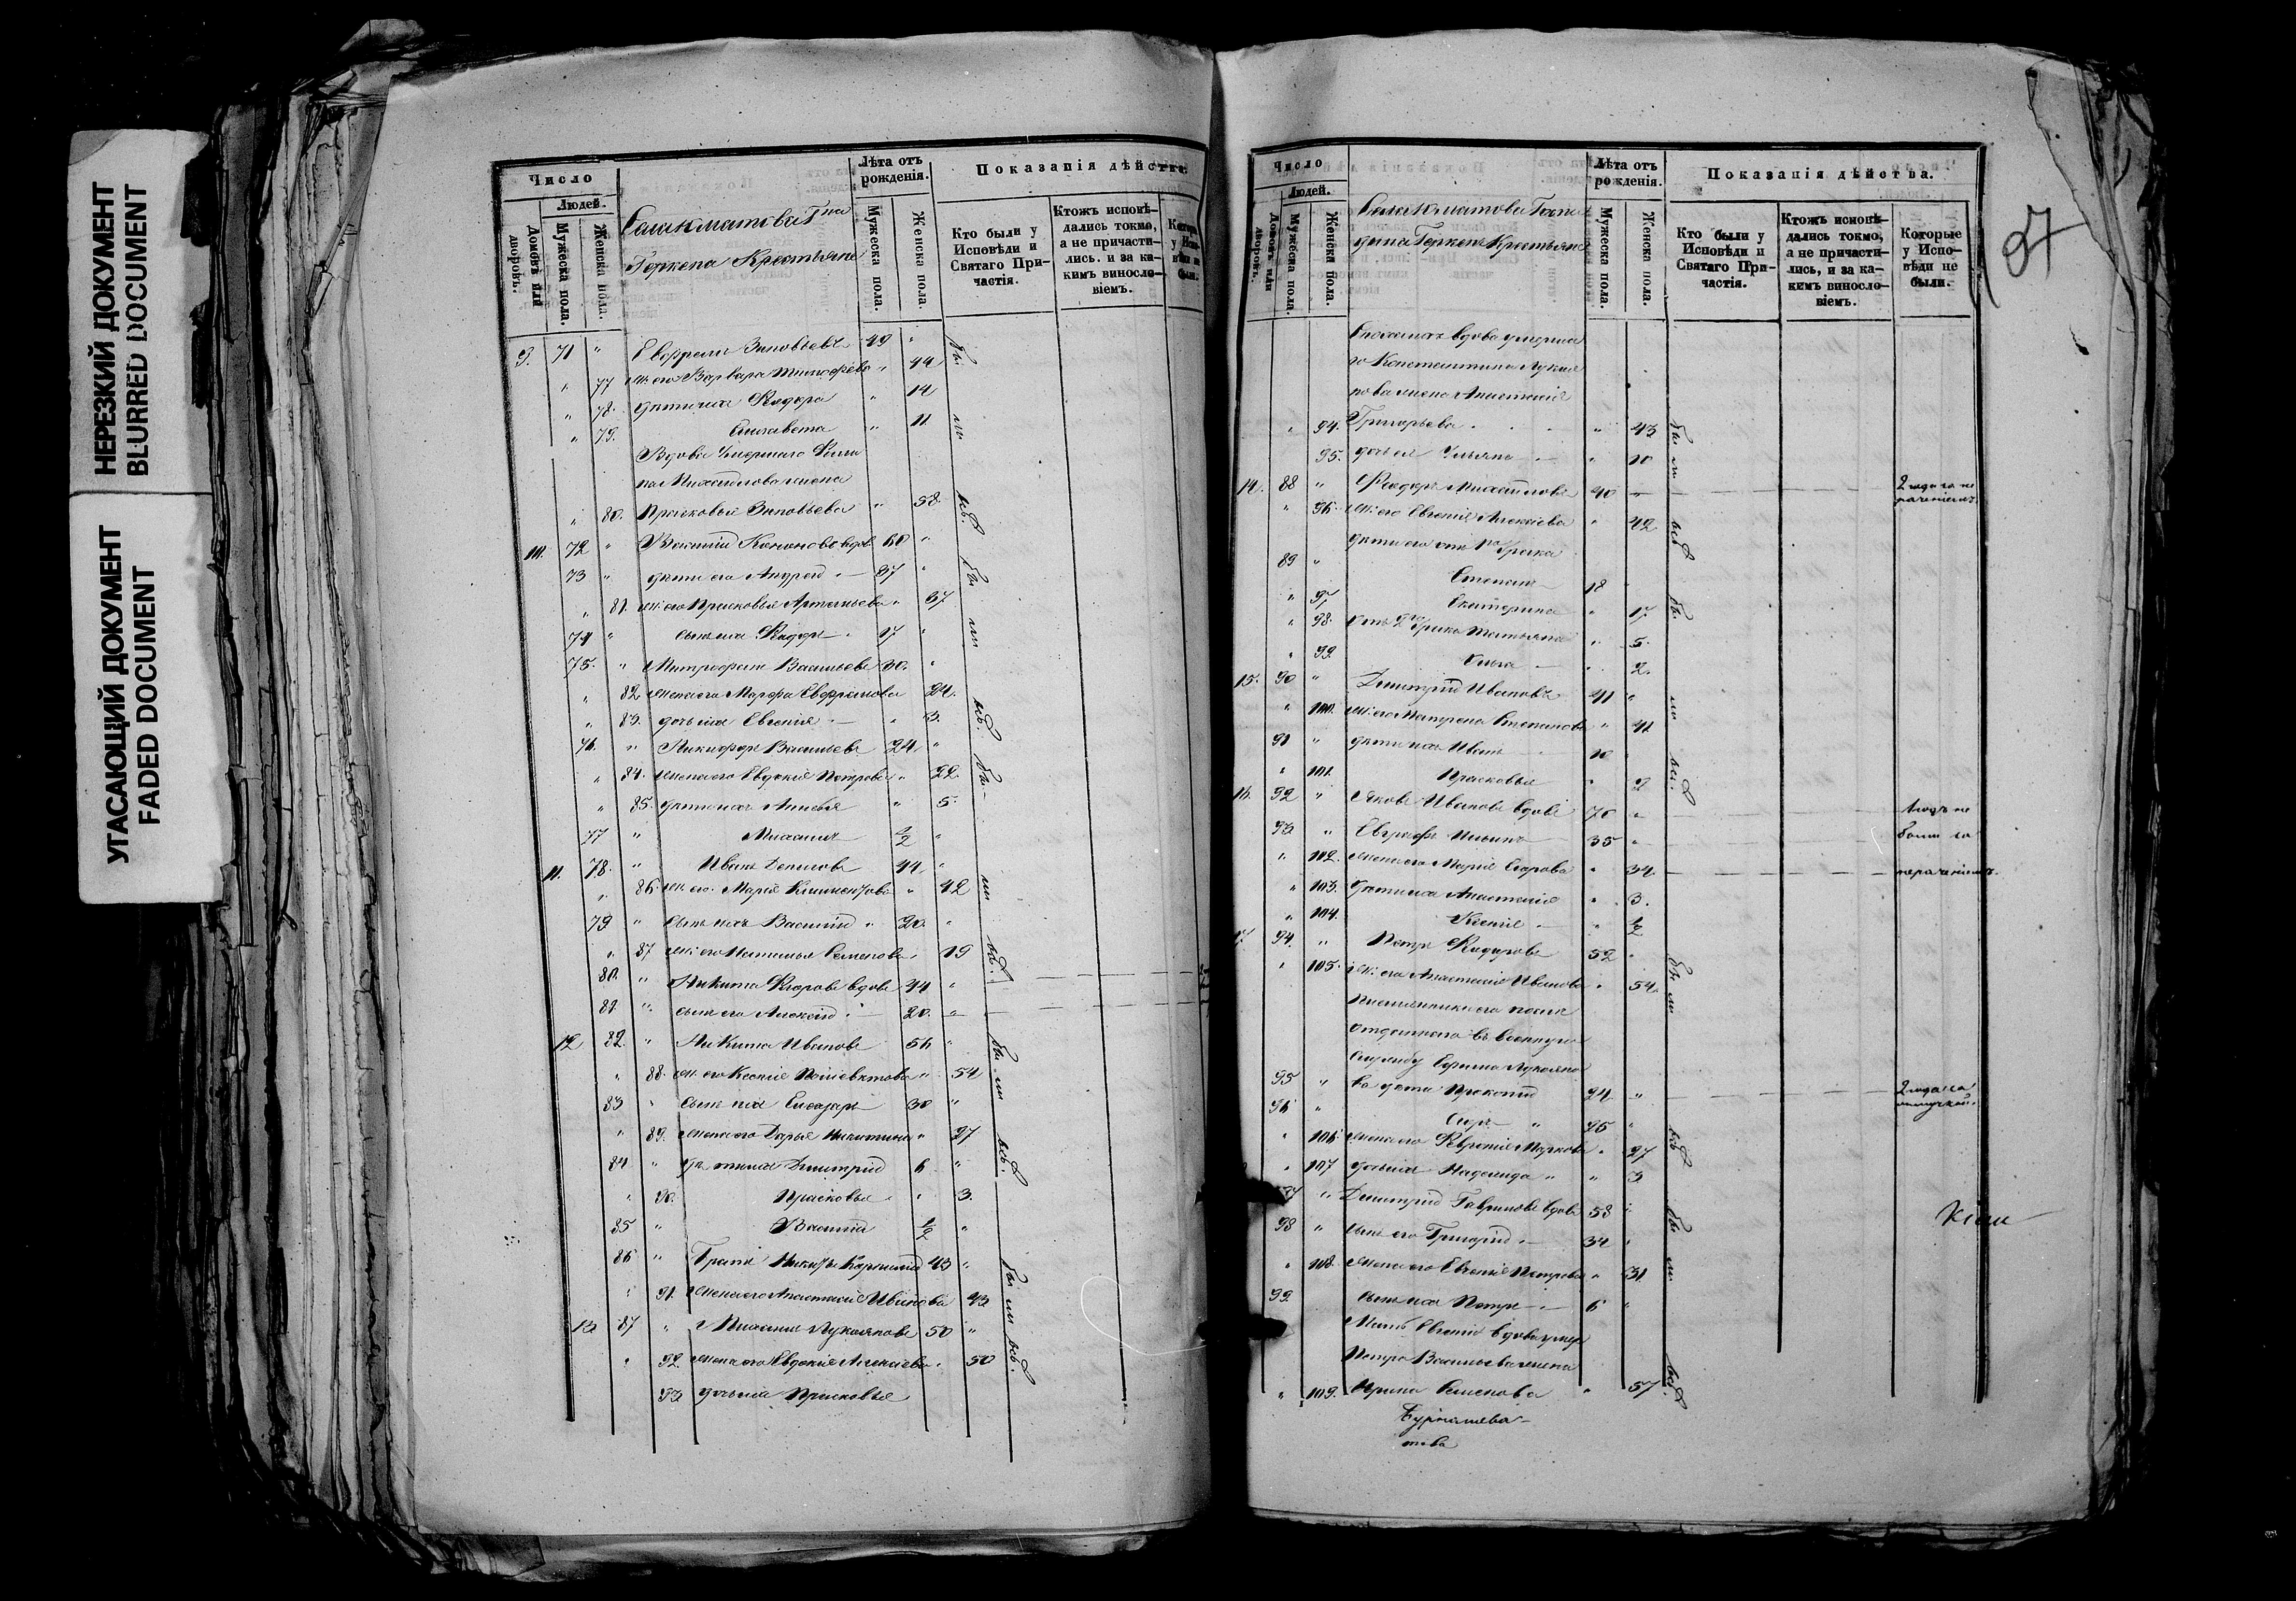 НЕРЕЗКИЙ ДОКУМЕНТ
BLURRED DOCUMENT
УГАСАЮЩИЙ ДОКУМЕНТ
FADED DOCUMENT
Число
Людей.
Домовъ или дворовъ.
Мужеска пола.
Женска пола.
Села Кматова Гна
Геркена Крестьяне
Лѣта отъ рожденія.
Мужеска пола.
Женска пола.
Показанія дѣйства
Кто были у Исповѣди и Святаго Причастія.
Ктожъ исповѣдались токмо, а не причастились. и за какимъ винословіемъ.
9. 71 " Евфремъ Зиновьевъ 49 "
" 77 жена его Варвара Тимофѣева " 44
" 78. дѣти ихъ Федора " 14
" 79. Елисавета " 11
Вдова умершаго
Михайлова жена
" 80. Прасковья Зиновьева " 58.
10. 72 " Василій Кононовъ вдов. 60 "
73 " дѣти его Андрей 37 "
" 81. ж. его Прасковья Артемьева " 37
74 " сынъ ихъ Федоръ 17 "
75. " Митрофанъ Васильевъ 30. "
" 82 жена его Марфа Евфремова 24.
" 83. дочь ихъ Евгенія " 3.
76. " Никифоръ Васильевъ 24. "
" 84. жена его Евдокія Петрова " 22.
" 85. дѣти ихъ " 5.
77 " Михаилъ ½ "
11. 78. " Иванъ Денисовъ 44 "
" 86. ж. его Марія Климентова " 42
79 " сынъ ихъ Василій 20. "
" 87 ж. его Наталья Семенова " 19
80. " Никита Федоровъ вдовъ 44 "
81. " сынъ его Алексѣй 20. "
12 82. " Никита Ивановъ 56 "
" 88. ж. его Ксенія Поліевктова " 54
83 " сынъ ихъ Елеазаръ 30 "
" 89. жена его Дарья Никитина " 27
84 " дѣти ихъ Дмитрій 6 "
" 90. Прасковья " 3.
85 " Василій ½ "
86 " Братъ Никиты 43 "
" 91. жена его Анастасія Иванова 43
13 87 " Михаилъ Лукьяновъ 50 "
" 92. жена его Евдокія Алексѣева " 50
93 дочь ихъ Прасковья
Число
Людей.
Домовъ или дворовъ.
Мужеска пола.
Женска пола.
Села Кматова Госпо
дина Геркена Крестьяне
Лѣта отъ рожденія.
Мужеска пола.
Женска пола.
Показанія дѣйства.
Кто были у Исповѣди и Святаго Причастія.
Ктожъ исповѣдались токмо, а не причастились, и за какимъ винословіемъ.
Которые у Исповѣди не были.
27
вдова умерша
го Константина Лукья
нова жена Анастасія
" 94. Григорьева " 43
95. дочь ея Ульяна " 10
14. 88 " Федоръ Михайловъ 40 "
2 года за не
раченіемъ
" 96. ж. его Евгенія Алексѣева " 42
дѣти его отъ 1го брака
89 " Степанъ 18 "
" 97 Екатерина " 17
" 98. отъ 2го брака Татьяна " 5.
" 99. Ольга " 2.
15. 90 " Дмитрій Ивановъ 41 "
" 100. ж. его Матрена Степанова " 41
91 " дѣти ихъ Иванъ 10 "
" 101. Прасковья " 2
16. 92 " Яковъ Ивановъ вдовъ 70 "
1 годъ не
93 " Евграфъ Ильинъ 35 "
были за
" 102. жена его Марія Егорова " 34.
нераченіемъ.
" 103. дѣти ихъ Анастасія " 3.
" 104. Ксенія " ½
17 94. " Петръ Федоровъ 52 "
" 105. ж. его Анастасія Иванова " 54
Племянники его
отданнаго въ военную
службу Ефима Лукьяно
95 " ва дѣти Прокопій 24 "
2 года за
отлучкой.
96 " 25 "
" 106. жена его Февронія Маркова " 27
" 107 дочь ихъ Надежда " 3
97 " Дмитрій Гавриловъ вдовъ 58 "
98 " сынъ его Григорій 34 "
" 108. жена его Евгенія Петрова " 31.
99. сынъ ихъ Петръ 6 "
Мать Евгеніи вдова умер
Петра Васильева жена
" 109. Ирина Семенова " 57